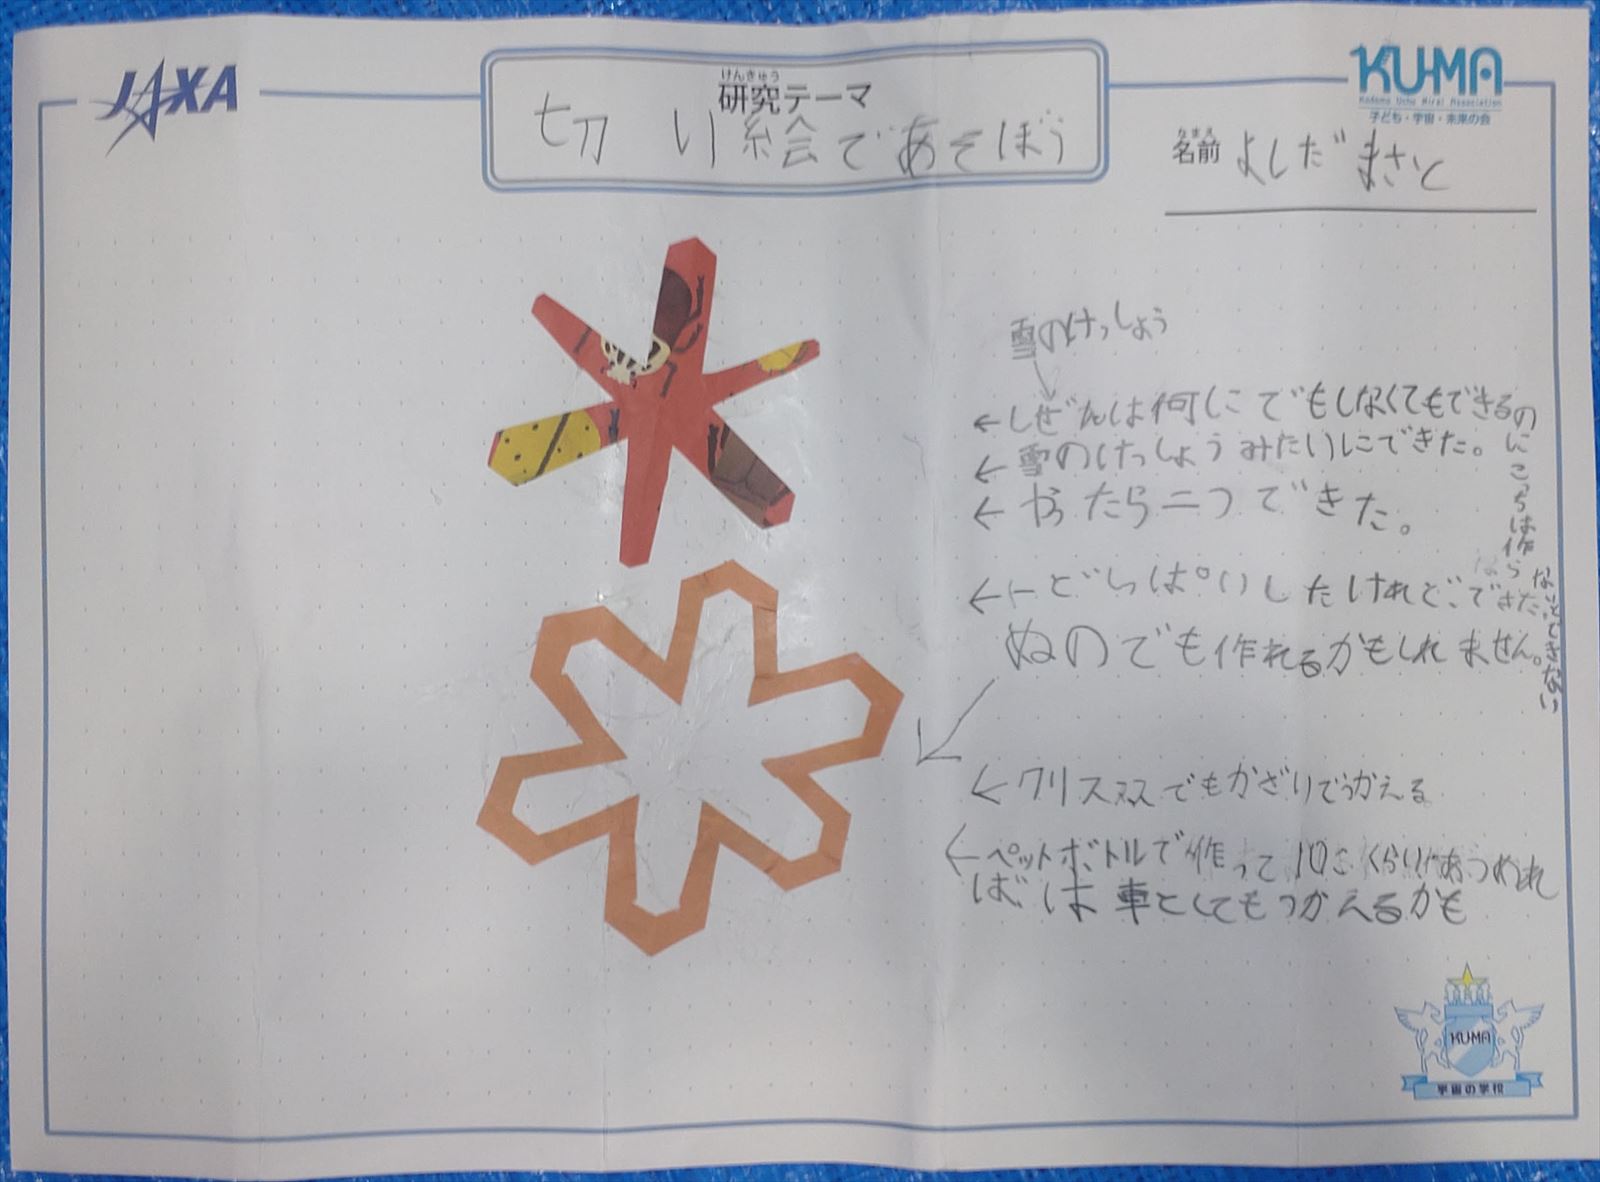 JAXA
けんきゅう
研究テーマ
切り絵であそぼう
KU-MA
Kodomo Uchu Mirai Association
子ども・宇宙・未来の会
なまえ
名前 よしだ まさと
雪のけっしょう
←しぜんは何にでもしなくてもできるのにこちらは作らないとできない
←雪のけっしょうみたいにできた。
←やったら二つできた。
←一どしっぱいしたけれどできた
ぬのでも作れるかもしれません。
←クリスマスでもかざりでつかえる
←ペットボトルで作って10こくらいあつめれ
ばは車としてもつかえるかも
KU-MA
宇宙の学校